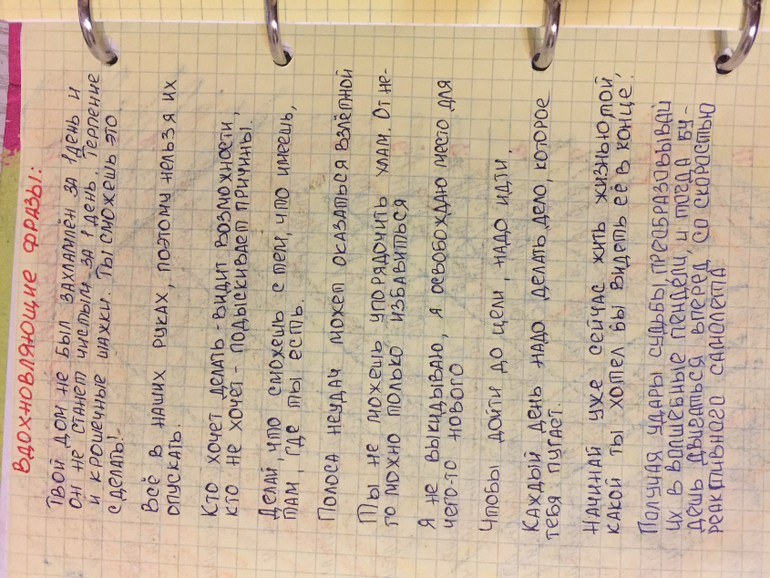 Вдохновляющие фразы:
Твой дом не был захламлён за 1 день и
он не станет чистым за 1 день. Терпение
и крошечные шажки. Ты сможешь это
сделать!
Всё в наших руках, поэтому нельзя их
опускать.
Кто хочет делать - видит возможности,
кто не хочет - подыскивает причины.
Делай, что сможешь с тем, что имеешь,
там, где ты есть.
Полоса неудач может оказаться взлётной
Ты не можешь упорядочить хлам. От не-
го можно только избавиться
Я не выкидываю, я освобождаю место для
чего-то нового
Чтобы дойти до цели, надо идти.
Каждый день надо делать дело, которое
тебя пугает.
Начинай уже сейчас жить жизнью той,
какой ты хотел бы видеть её в конце.
Получая удары судьбы, преобразовывай
их в волшебные пендели, и тогда бу-
дешь двигаться вперед со скоростью
реактивного самолета